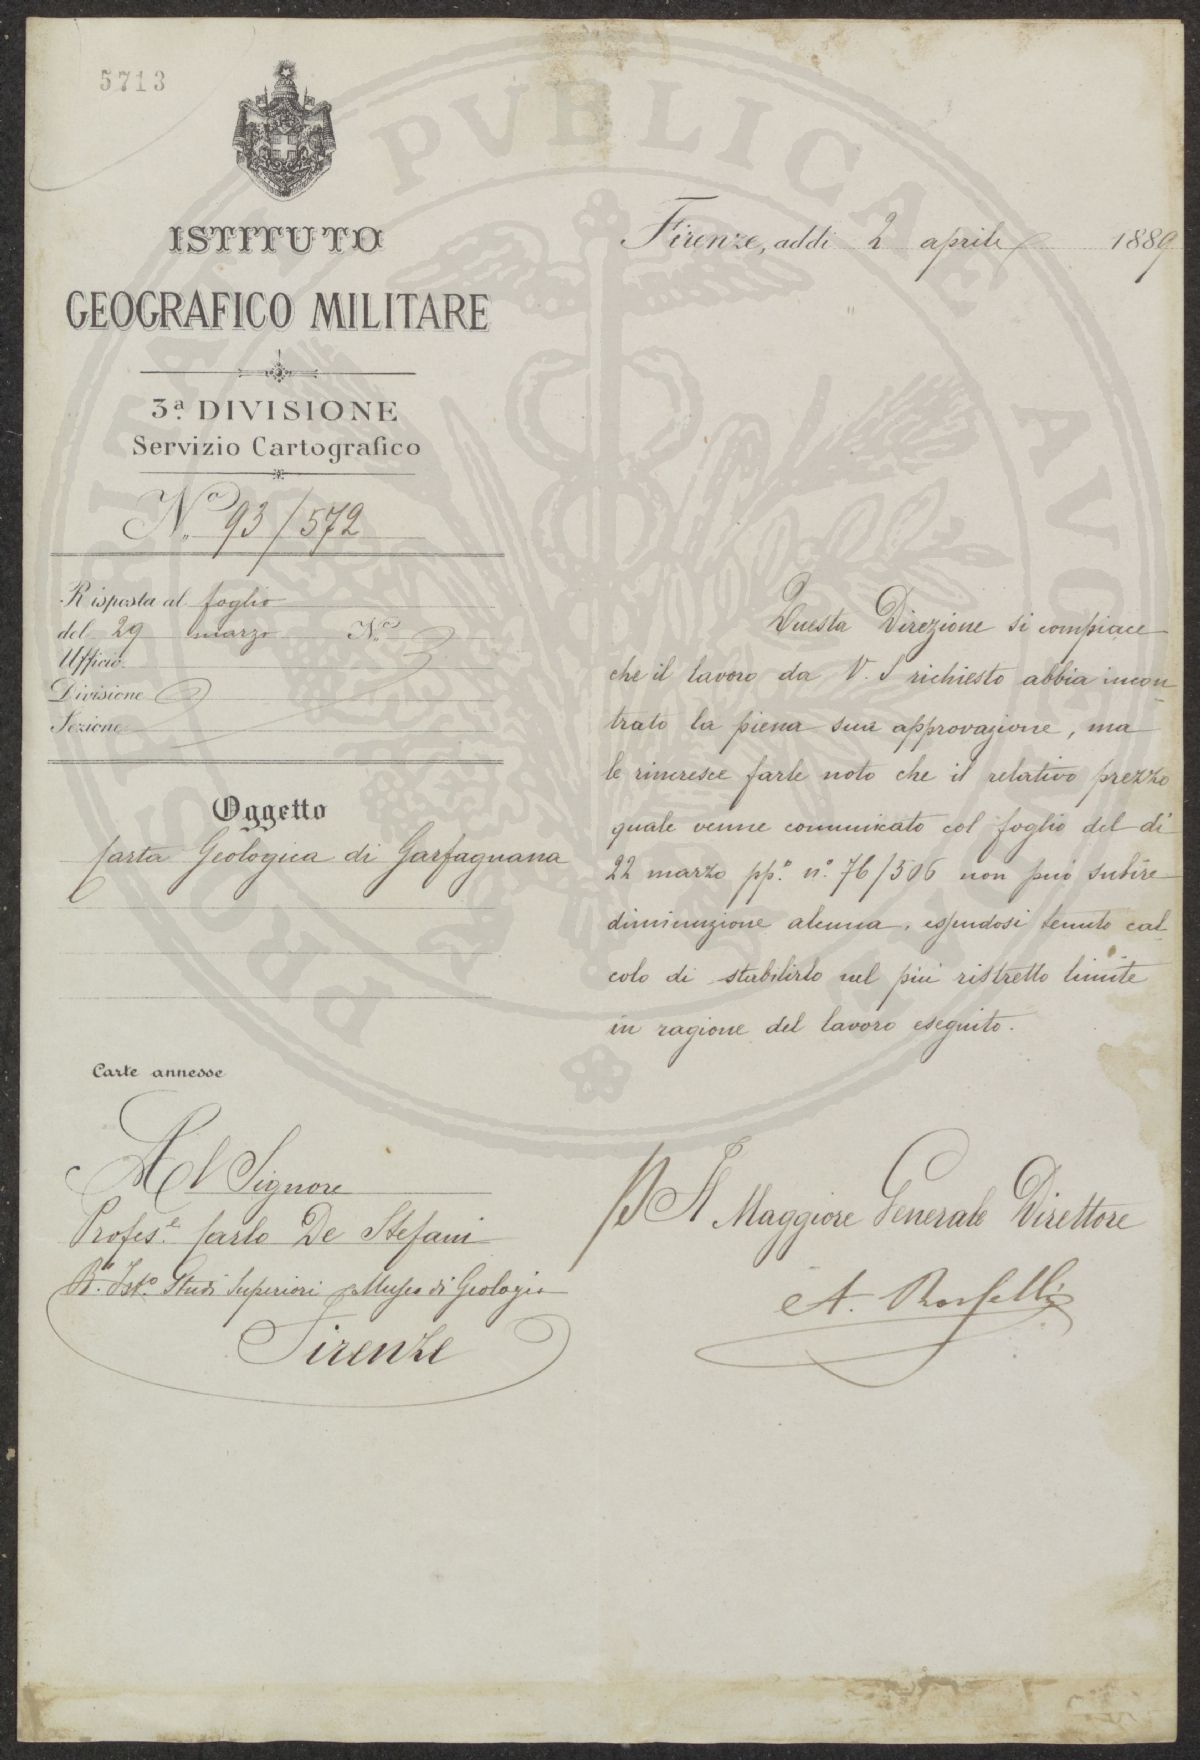 5713
ISTITUTO
GEOGRAFICO MILITARE
3ª DIVISIONE
Servizio Cartografico
N.o 93/572
Risposta al foglio
del 29 marzo N.o
Ufficio
Divisione
Sezione
Oggetto
Carta Geologica di Garfagnana
Carte annesse
Al Signore
Profes.e Carlo De Stefani
R.o Ist.o Studi Superiori Museo di Geologia
Firenze
Firenze, addì 2 aprile 1889
Questa Direzione si compiace
che il lavoro da V. S richiesto abbia incon-
trato la piena sua approvazione, ma
le rincresce farle noto che il relativo prezzo
quale venne comunicato col foglio del dì
22 marzo pp.o n.o 76/506 non può subire
diminuzione alcuna, essendosi tenuto cal-
colo di stabilirlo nel più ristretto limite
in ragione del lavoro eseguito.
p Il Maggiore Generale Direttore
A. Rosselli
PVBLICAE